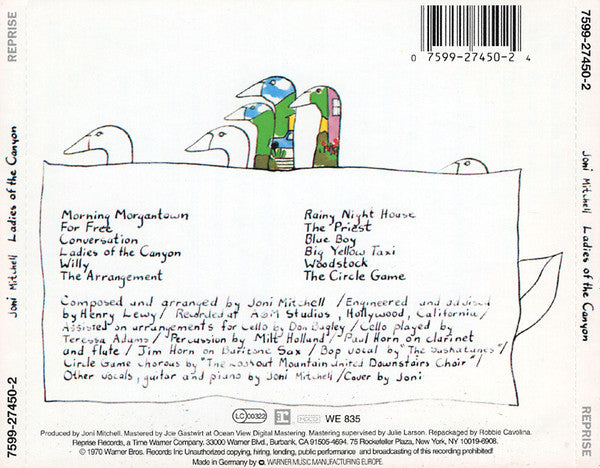 REPRISE
Joni Mitchell Ladies of the Canyon
7599-27450-2
7599-27450-2
Joni Mitchell Ladies of the Canyon
REPRISE
0 7599-27450-2 4
Morning Morgantown
For Free
Conversation
Ladies of the Canyon
Willy
The Arrangement
Rainy Night House
The Priest
Blue Boy
Big Yellow Taxi
Woodstock
The Circle Game
Composed and arranged by Joni Mitchell / Engineered and advised
by Henry Lewy / Recorded at A&M Studios, Hollywood, California /
Assisted on arrangements for Cello by Don Bagley / Cello played by
Teressa Adams / Percussion by Milt Holland / Paul Horn on clarinet
and flute / Jim Horn on Baritone Sax / Bop vocal by "The Saskatunes" /
Circle Game chorous by "The Lookout Mountain United Downstairs Choir" /
Other vocals, guitar and piano by Joni Mitchell / Cover by Joni
LC 00322 WE 835
Produced by Joni Mitchell. Mastered by Joe Gastwirt at Ocean View Digital Mastering. Mastering supervised by Julie Larson. Repackaged by Robbie Cavolina.
Reprise Records, a Time Warner Company. 33000 Warner Blvd., Burbank, CA 91505-4694. 75 Rockefeller Plaza, New York, NY 10019-6908.
© 1970 Warner Bros. Records Inc Unauthorized copying, hiring, lending, public performance and broadcasting of this recording prohibited!
Made in Germany by WARNER MUSIC MANUFACTURING EUROPE.